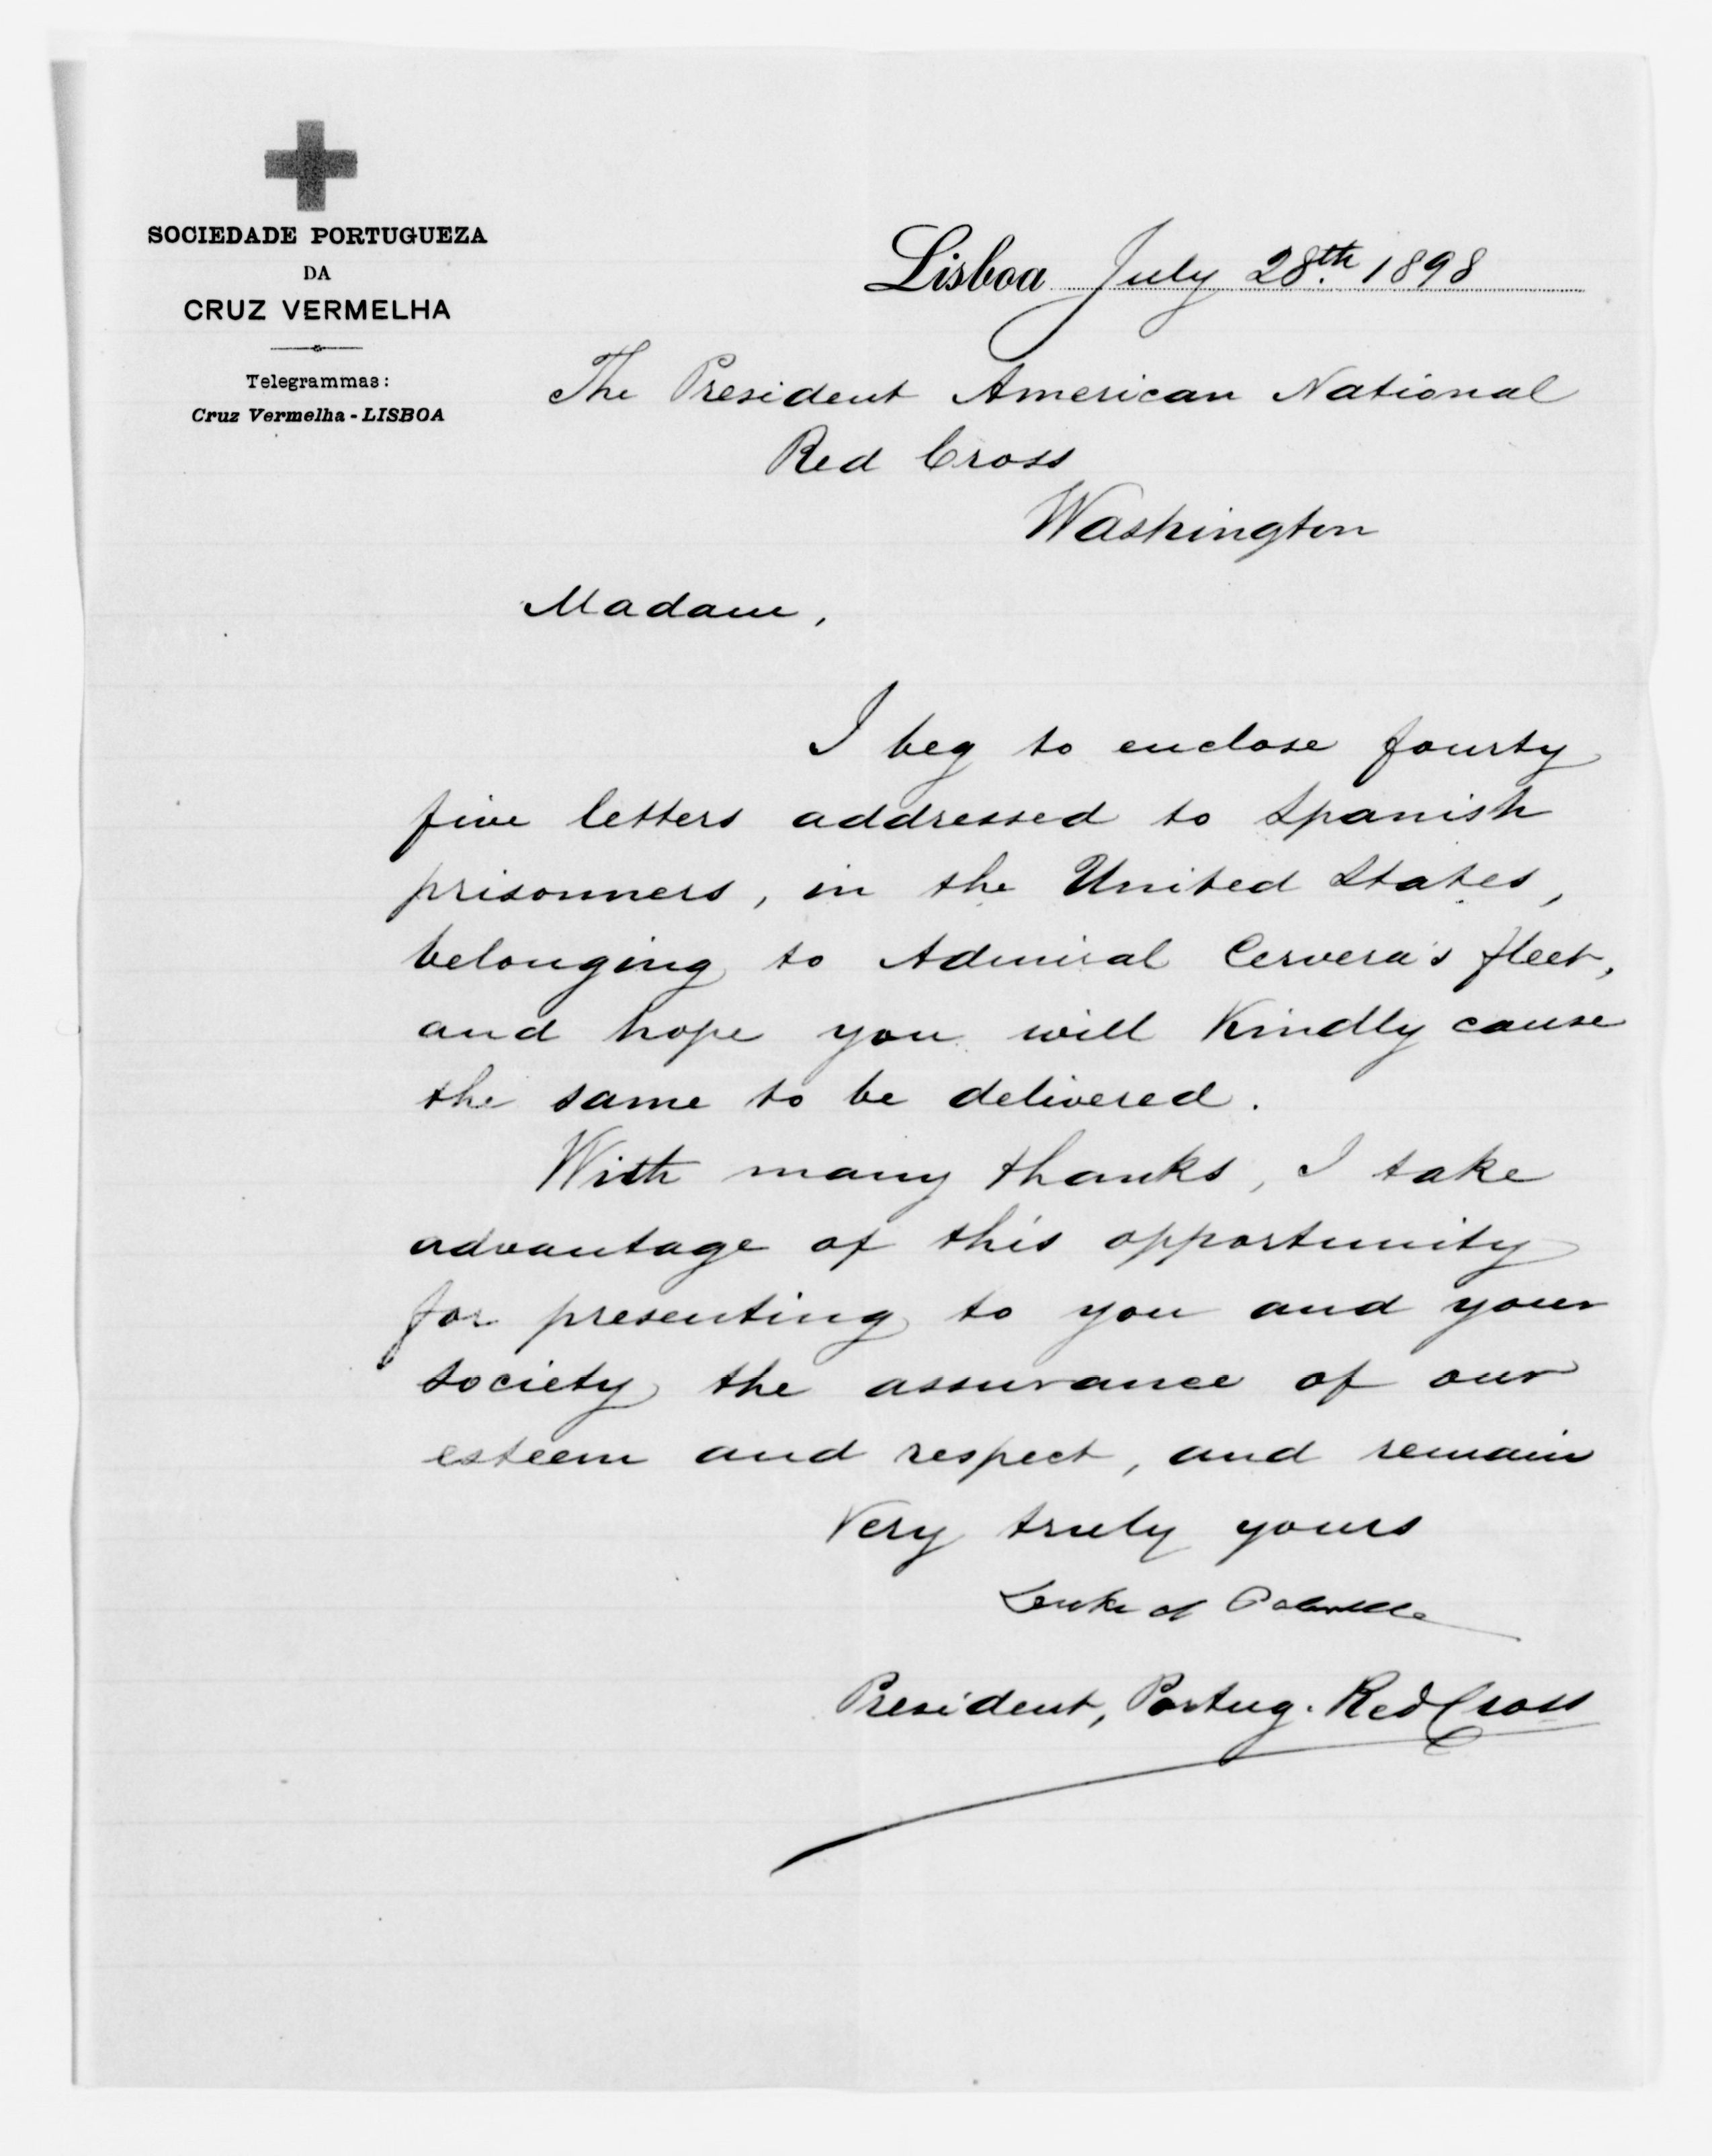 SOCIEDADE PORTUGUEZA
DA
CRUZ VERMELHA
Telegrammas:
Cruz Vermelha - LISBOA
Lisboa July 28th. 1898
The President American National
Red Cross
Washington
Madam,
I beg to enclose fourty
five letters addressed to Spanish
prisonners, in the United States,
belonging to Admiral Cervera's fleet,
and hope you will Kindly cause
the same to be delivered.
With many thanks, I take
advantage of this opportunity
for presenting to you and your
society the assurance of our
esteem and respect, and remain
Very truly yours
of
President, Portug. Red Cross